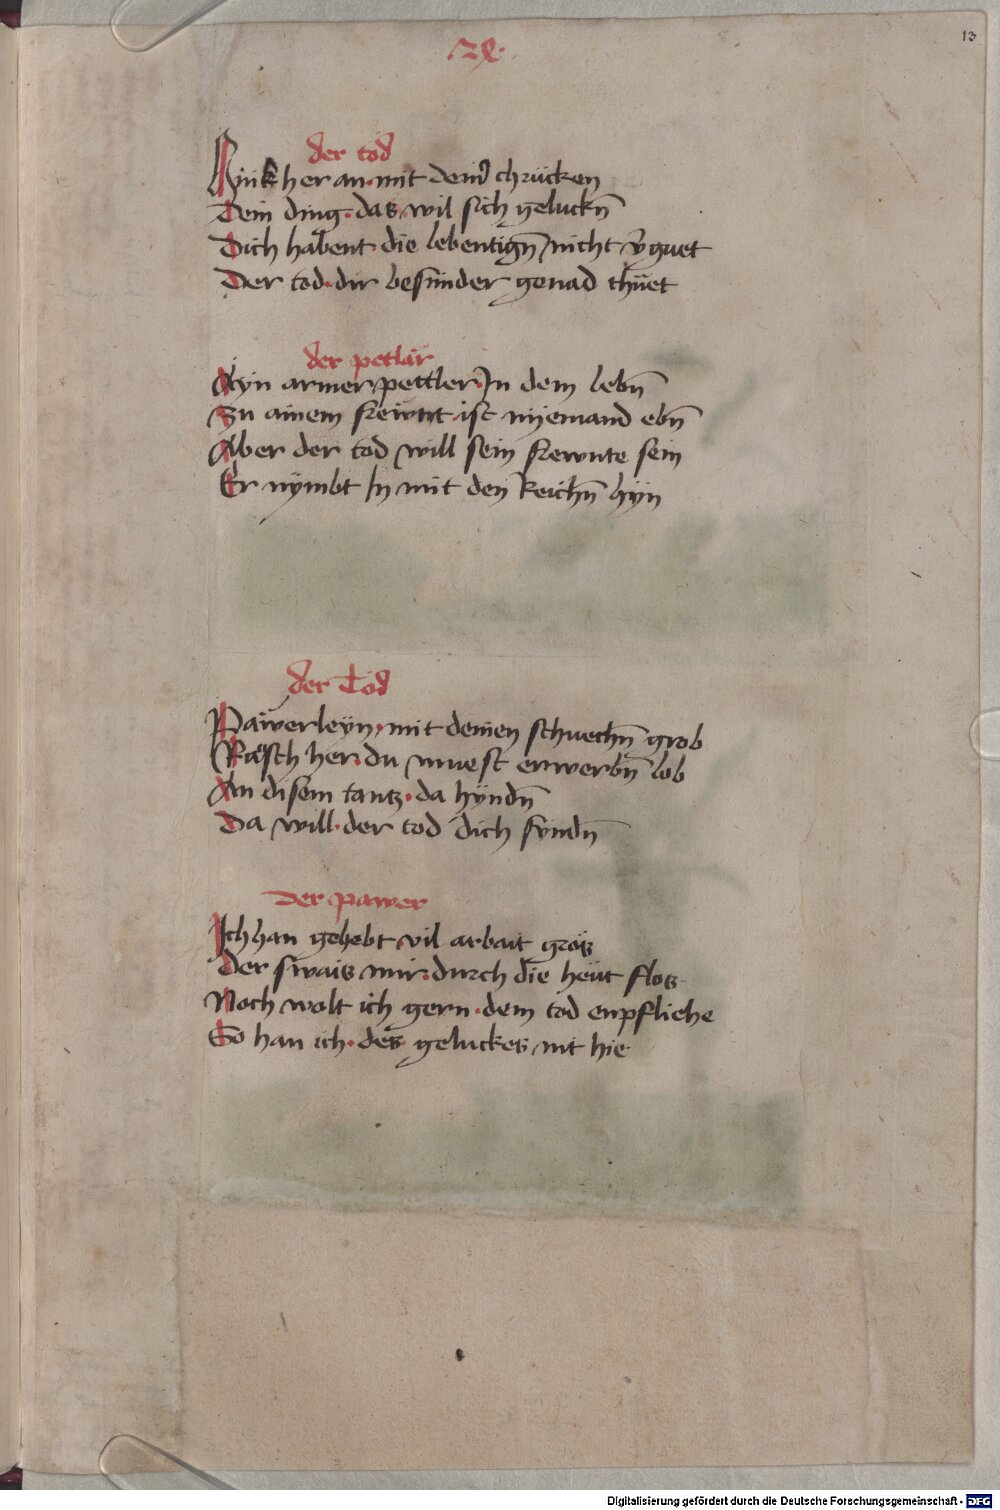 13
der tod
Hink her an mit dein chrücken
Dein ding das wil sich geluckn̄
Dich habent die lebentign̄ nicht v̄guet
Der tod dir besunder genad thüet
der petlär
Ayn armer pettler In dem lebn̄
Zu ainem frewnt ist nyemand ebn̄
Aber der tod will sein frewnte sein
Er nÿmbt In mit den Reichn̄ hyn
der Tod
Päwerleyn mit deinen schuechn̄ grob
Räsch her du muest erwerbn̄ lob
An disem tantz da hÿndn̄
Da will der tod dich fÿndn̄
Der pawer
Ich han gehebt vil arbait gros
Der swais mir durch die heüt flos
Noch wolt ich gern dem tod enpfliehe
So han ich des geluckes nit hie
Digitalisierung gefördert durch die Deutsche Forschungsgemeinschaft - DFG